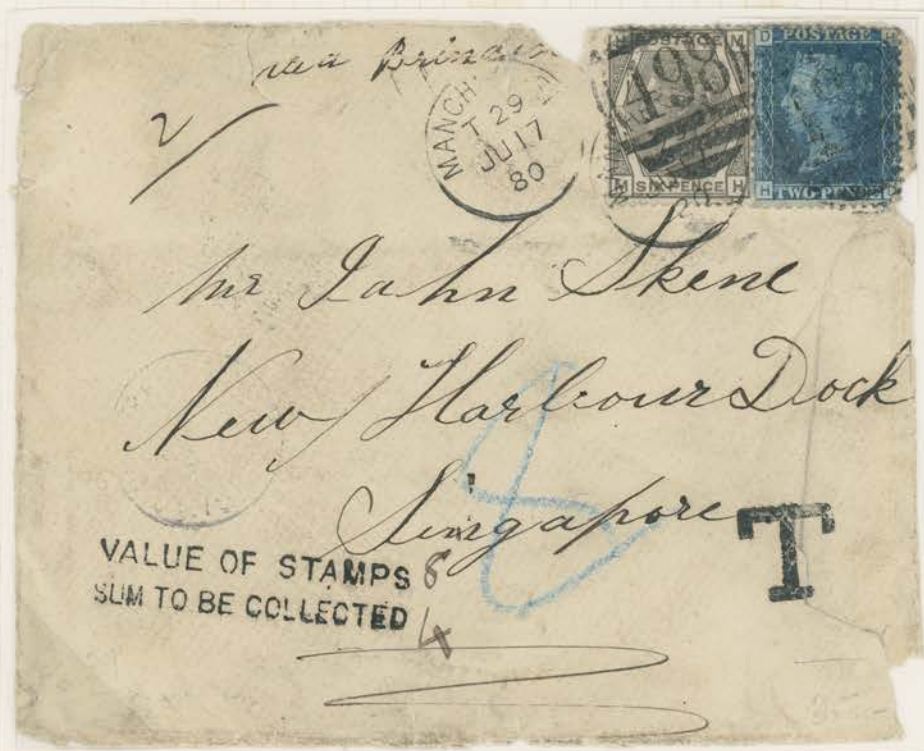 via
2/
MANCH
T 29
JU 17
80
498
POSTAGE
H M
M SIX PENCE H
D POSTAGE H
H TWO PENCE D
Mr John Skene
New Harbour Dock
Singapore
8
T
VALUE OF STAMPS 8
SUM TO BE COLLECTED 4